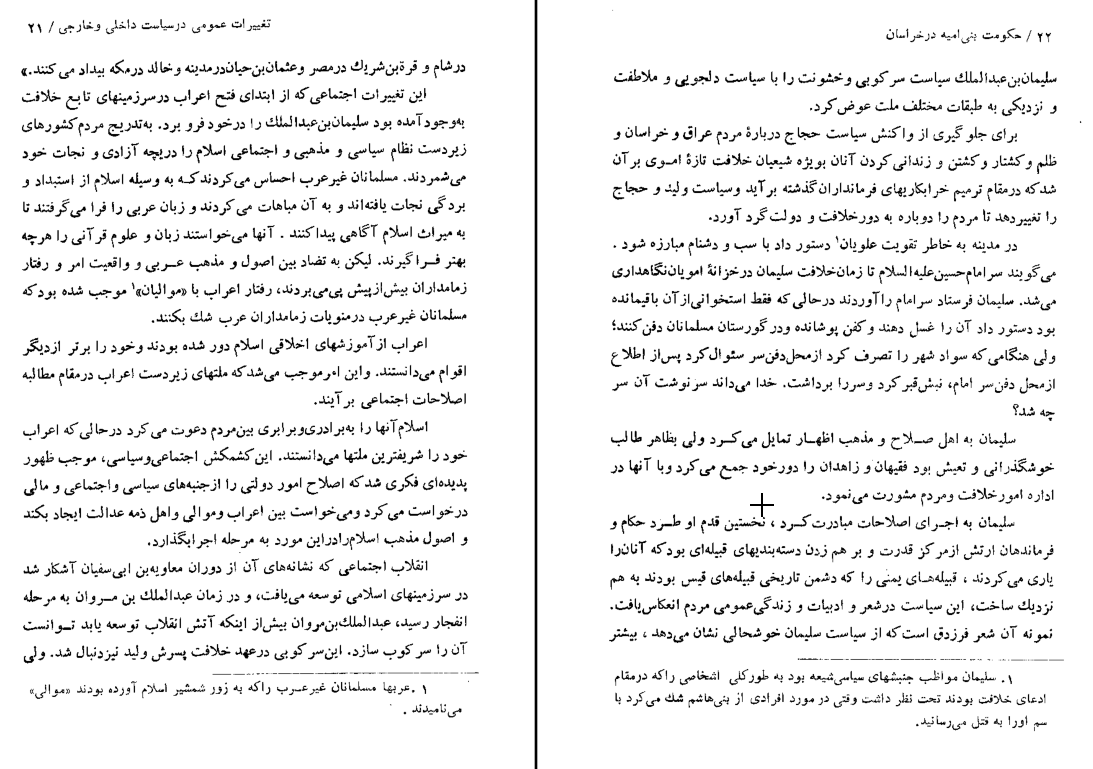 تغییرات عمومی درسیاست داخلی وخارجی / ۲۱
درشام و قرةبن‌شریك درمصر وعثمان‌بن‌حیان‌درمدینه وخالد درمکه بیداد می‌کنند.»
این تغییرات اجتماعی‌که از ابتدای فتح اعراب درسرزمینهای تابع خلافت
به‌وجودآمده بود سلیمان‌بن‌عبدالملك را درخود فرو برد. به‌تدریج مردم‌کشورهای
زیردست نظام سیاسی و مذهبی و اجتماعی اسلام را دریچه آزادی و نجات خود
می‌شمردند. مسلمانان غیرعرب احساس می‌کردندکـه به وسیله اسلام از استبداد و
بردگی نجات یافته‌اند و به آن مباهات می‌کردند و زبان عربی را فرا می‌گفتند تا
به میراث اسلام آگاهی پیداکنند . آنها می‌خواستند زبان و علوم قرآنی را هرچه
بهتر فـراگیرند. لیکن به تضاد بین اصول و مذهب عـربی و واقعیت امر و رفتار
زمامداران بیش‌ازپیش پی‌می‌بردند، رفتار اعراب با «موالیان»۱ موجب شده بودکه
مسلمانان غیرعرب درمنویات زمامداران عرب شك بکنند.
اعراب ازآموزشهای اخلاقی اسلام دور شده بودند وخود را برتر ازدیگر
اقوام می‌دانستند. واین امرموجب می‌شدکه ملتهای زیردست اعراب درمقام مطالبه
اصلاحات اجتماعی برآیند.
اسلام‌آنها را به‌برادری‌وبرابری بین‌مردم دعوت می‌کرد درحالی‌که اعراب
خود را شریفترین ملتها می‌دانستند. این‌کشمکش اجتماعی‌وسیاسی، موجب ظهور
پدیده‌ای فکری شدکه اصلاح امور دولتی را ازجنبه‌های سیاسی واجتماعی و مالی
درخواست می‌کرد ومی‌خواست بین اعراب وموالی واهل ذمه عدالت ایجاد بکند
و اصول مذهب اسلام‌رادراین مورد به مرحله اجرابگذارد.
انقلاب اجتماعی که نشانه‌های آن از دوران معاویه‌بن ابی‌سفیان آشکار شد
در سرزمینهای اسلامی توسعه می‌یافت، و در زمان عبدالملك بن مـروان به مرحله
انفجار رسید، عبدالملك‌بن‌مروان پیش‌از اینکه آتش انقلاب توسعه یابد تـوانست
آن را سرکوب سازد. این‌سرکوبی درعهد خلافت پسرش ولید نیزدنبال شد. ولی
۱ .عربها مسلمانان غیرعـرب راکه به زور شمشیر اسلام آورده بودند «موالی»
می‌نامیدند .
۲۲ / حکومت بنی‌امیه درخراسان
سلیمان‌بن‌عبدالملك سیاست سرکوبی وخشونت را با سیاست دلجویی و ملاطفت
و نزدیکی به طبقات مختلف ملت عوض‌کرد.
برای جلوگیری از واکنش سیاست حجاج دربارۀ مردم عراق و خراسان و
ظلم وکشتار وکشتن و زندانی‌کردن آنان بویژه شیعیان خلافت تازۀ امـوی برآن
شدکه درمقام ترمیم خرابکاریهای فرمانداران‌گذشته برآید وسیاست ولید و حجاج
را تغییردهد تا مردم را دوباره به دورخلافت و دولت‌گرد آورد.
در مدینه به خاطر تقویت علویان۱ دستور داد با سب و دشنام مبارزه شود .
می‌گویند سرامام‌حسین‌علیه‌السلام تا زمان‌خلافت سلیمان درخزانۀ امویان‌نگاهداری
می‌شد. سلیمان فرستاد سرامام راآوردند درحالی‌که فقط استخوانی‌ازآن باقیمانده
بود دستور داد آن را غسل دهند وکفن پوشانده ودرگورستان مسلمانان دفن‌کنند؛
ولی هنگامی‌که سواد شهر را تصرف کرد ازمحل‌دفن‌سر سئوال‌کرد پس‌از اطلاع
ازمحل دفن‌سر امام، نبش‌قبرکرد وسررا برداشت. خدا می‌داند سرنوشت آن سر
چه شد؟
سلیمان به اهل صـلاح و مذهب اظهـار تمایل می‌کـرد ولی بظاهر طالب
خوشگذرانی و تعیش بود فقیهان و زاهدان را دورخود جمع می‌کرد وبا آنها در
اداره امورخلافت ومردم مشورت می‌نمود.
سلیمان به اجـرای اصلاحات مبادرت‌کـرد ، نخستین قدم او طـرد حکام و
فرماندهان ارتش ازمرکز قدرت و بر هم زدن دسته‌بندیهای قبیله‌ای بودکه آنان‌را
یاری می‌کردند ، قبیله‌هـای یمنی را که دشمن تاریخی قبیله‌های قیس بودند به هم
نزدیك ساخت، این سیاست درشعر و ادبیات و زندگی‌عمومی مردم انعکاس‌یافت.
نمونه آن شعر فرزدق است‌که از سیاست سلیمان خوشحالی نشان می‌دهد ، بیشتر
۱. سلیمان مواظب جنبشهای سیاسی‌شیعه بود به طورکلی اشخاصی راکه درمقام
ادعای خلافت بودند تحت نظر داشت وقتی در مورد افرادی از بنی‌هاشم شك می‌کرد با
سم اورا به قتل می‌رسانید.